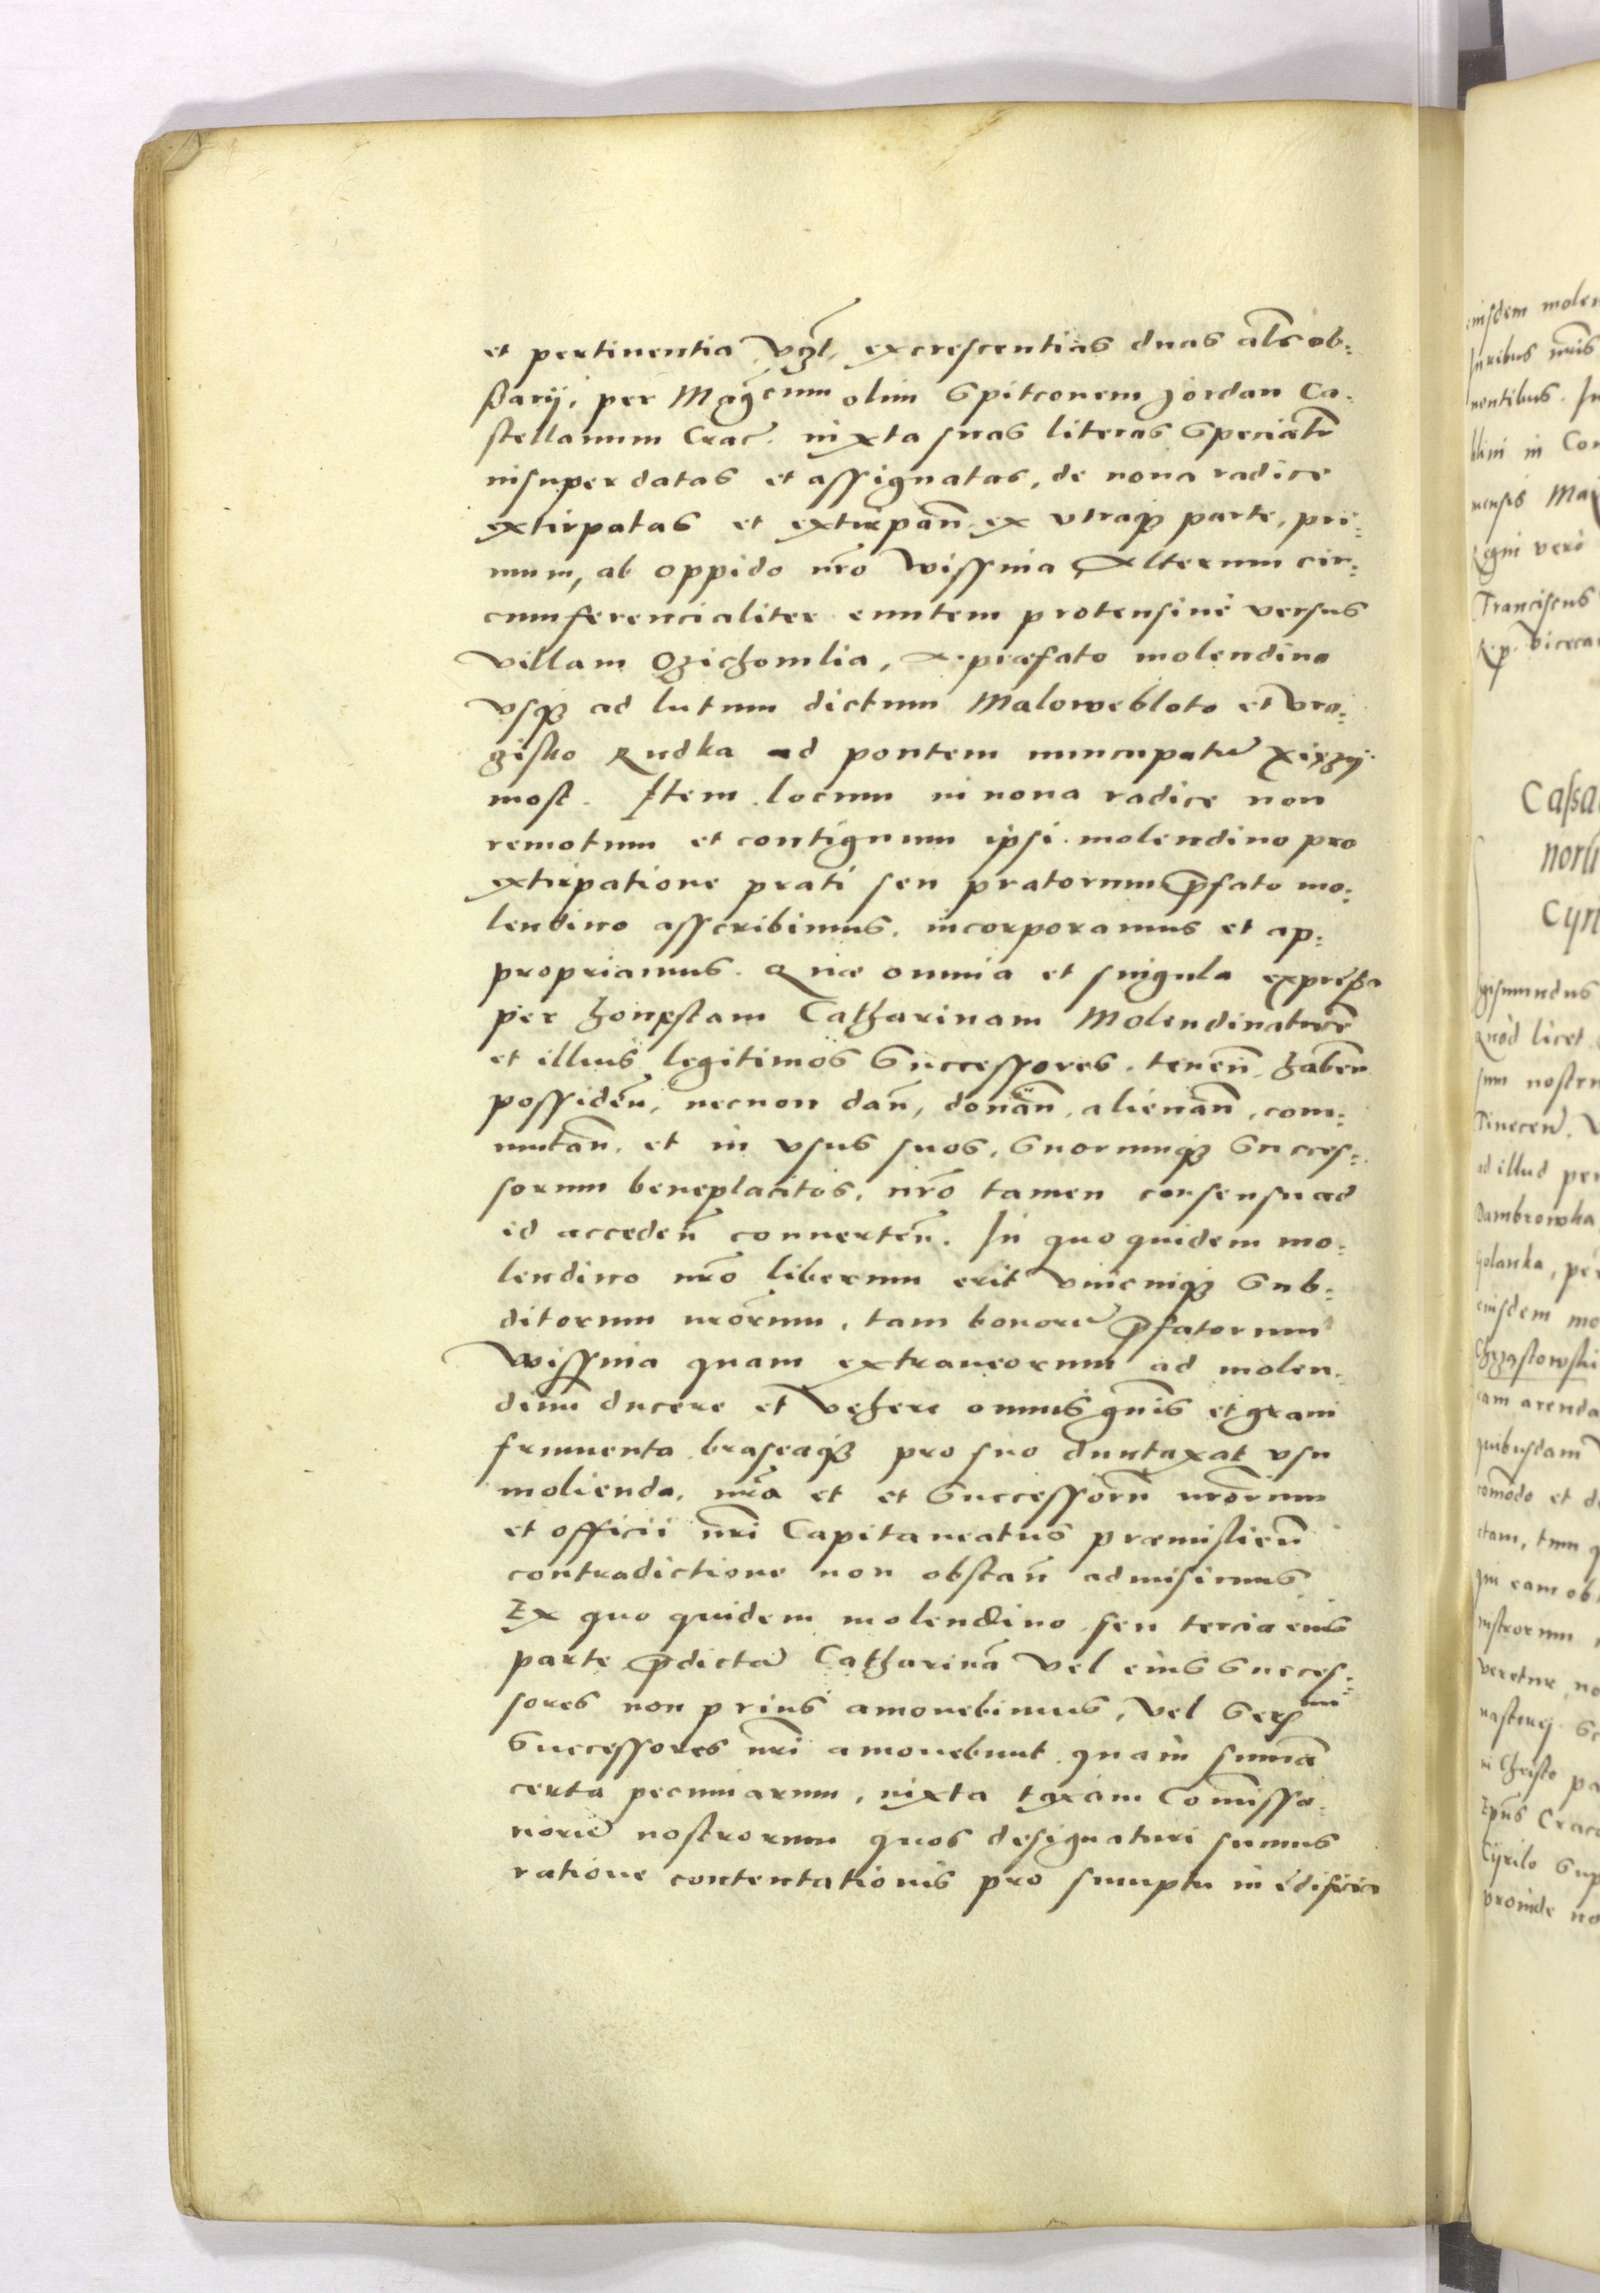 et pertinentia, vg̃l, excrescentias duas al̃s ob:
szarÿ, per Mag̃cum olim Spitconem Jordan Ca:
stellanum Crac̃. iuxta suas literas speciatr̃
insuper datas et assignatas, de noua radice
extirpatas et extirpan̄. ex vtraq3 parte, pri:
mum, ab oppido nr̃o Wissnia, Alterum cir:
cumferencialiter euntem protensiue versus
villam Ozichomlia, A praefato molendino
vsq3 ad lutum dictum Malowebloto et Vro:
zisko Rudka ad pontem nuncupatũ
most. Item locum in noua radice non
remotum et contiguum ipsi molendino pro
extirpatione prati seu pratorum p̃fato mo:
lendino asscribimus, incorporamus et ap:
propriamus. Quae omnia et singula expressa
per honestam Catharinam Molendinatricẽ
et illius legitimos Successores, tenen̄, haben̄
possiden̄, necnon dan̄, donan̄, alienan̄, com:
mutan̄, et in vsus suos, Suorumq3 Succes:
sorum beneplacitos, nr̃o tamen consensu ad
id acceden̄ conuerten̄. In quo quidem mo:
lendino nr̃o liberum erit vnicuiq3 Sub:
ditorum nr̃orum, tam bonorũ p̃fatorum
Wissnia quam extraneorum ad molen:
dinũ ducere et vehere omnis gñis et grani
frumenta braseaq3 pro suo duntaxat vsu
molienda, nr̃a et et Successorũ nr̃orum
et officii nr̃i Capitaneatus praemislien̄
contradictione non obstan̄ admisimus
Ex quo quidem molendino seu tercia eius
parte p̃dictã Catharinã vel eius Succes:
sores non prius amouebimus, vel Ser̃mi
Successores nr̃i amouebunt quam sum̃a
certa pecuniarum, iuxta taxam Com̃issa:
riorũ nostrorum quos designaturi sumus
ratione contentationis pro sumptu in edificia
einsdem molen
Juribus nr̃is
nentibus. In
blini in Con
nensis
Regni vero
Franciscus
R. p. Vicecan
Cassa
norũ
Cyri
gismundus
Quod licet
sum nostru
Tinecen̄. V
ad illud per
Dambrowka
golanka, per
eiusdem mo
Chrzastowski
cam arenda
quibusdam
com̃odo et d
ctam, tum q
qui eam ob
nistrorum
veretur, no
nasterij Sc
in Christo pa
Epũs Craco
Cyrilo Sup
proinde no